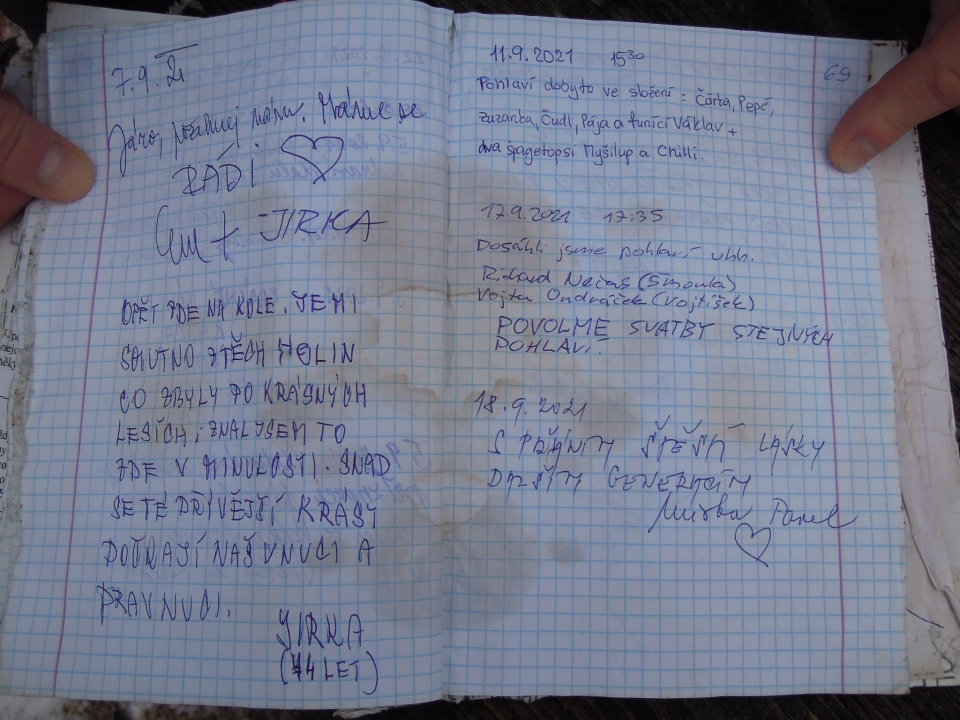 7.9. 21
Járo, pozdravuj mámu. Máme se
RÁDI
+ JIRKA
OPĚT ZDE NA KOLE. JE MI
SMUTNO Z TĚCH HOLIN
CO ZBYLY PO KRÁSNÝCH
LESÍCH, ZNAL JSEM TO
ZDE V MINULOSTI. SNAD
SE TÉ DŘÍVĚJŠÍ KRÁSY
DOČKAJÍ NAŠI VNUCI A
PRAVNUCI.
JIRKA
(74 LET)
69
11.9.2021 1530
Pohlaví dobyto ve složení: Čárka, Pepé,
Zuzanka, Čudl, Pája a funící Václav +
dva špagetopsi Myšilup a Chilli.
17.9.2021 17:35
Dosáhli jsme pohlaví uhh.
Richard Nečas (Šmoula)
Vojta Ondráček (Vojtíšek)
POVOLME SVATBY STEJNÝCH
POHLAVÍ.
18.9.2021
S PŘÁNÍM ŠTĚSTÍ LÁSKY
DALŠÍM GENERACÍM
Mirka Pavel